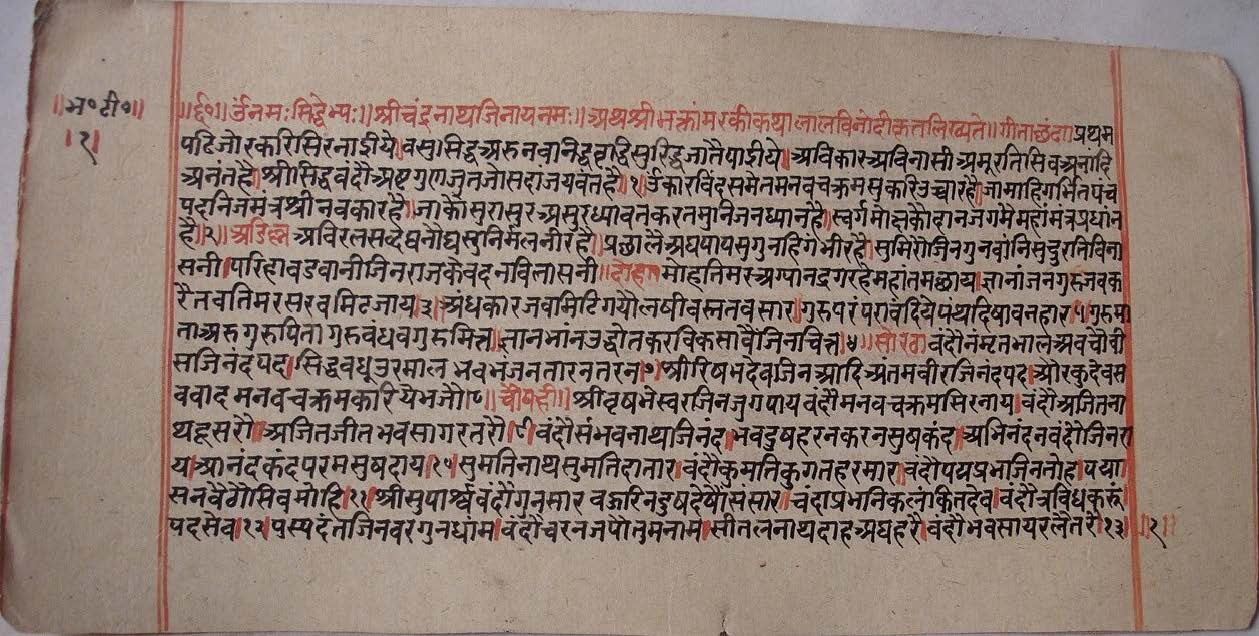 ॥भ॰टी॰॥
।१।
॥६०॥ ॐनमःसिद्देभ्यः॥ श्रीचंद्रनाथजिनायनमः॥ अथश्रीभक्तांमरकीकथालालविनोदीकृतलिख्यते॥ गीताछंद॥ प्रथम
पटिजोरकरिसिरनाईये।वसुसिद्धअरुनवनिद्ध जातैपाईये।अविकारअविनासीअमूरतिसिवअनादि
अनंतहै।श्रीसिद्धवंदौअष्टगुणजुतजोसदाजयवंतहै।१।ॐकारविंदसमेतमनवचक्रमसुकरिउच्चारहै।जामाहिगर्भितपंच
पदनिजमंत्रश्रीनवकारहै।जाकौसुरासुरअसुरध्यावतकरतमुनिजनध्यानहै।स्वर्गमोक्षकौदानजगमैमहांमंत्रप्रधांन
है॥२॥अडिल्ल अविरलसब्दघनौघसुनिर्मलनीरहै। प्रछालैअघपापसुगुनहिगंभीरहै।सुमिरौजिनगुनवांनिसुदुरतिविना
सनी।परिहावडवानीजिनराजकेवदनविलासनी॥दोहा॥मोहतिमरअग्यानद्रगरहेमहांतमछाय।ज्ञानांजनगुरुजबक
रैतबतिमरसरबमिटजाय।३।अंधकारजबमिटिगयौलषीवस्ततवसार।गुरुपरंपरावंदियेपंथदिषावनहार।४।गुरुमा
ताअरुगुरुपितागुरुबंधवगुरुमित्त।ज्ञानभांनउद्दोतकरविकसावैजिनचित्त।५॥सोरठा॥वंदौ चौवी
सजिनंदपद।सिद्धवधूउरमाल भवभंजनतारनतरन।७।श्रीरिषभदेवजिनआदिअंतमवीरजिनंदपद।औरकुदेवस
ववाद मनवचक्रमकरियेभजौ।८॥चौपही॥ श्रीवृषभेस्वरजिनजुगपाय वंदौमनवचक्रमसिरनाय।वंदौअजितना
थदूसरौ।अजितजीतभवसागरतरौ।९।वंदौसंभवनाथजिनंद।भवदुषहरनकरनसुषकंद।अभिनंदनवंदौजिनरा
य।आनंदकंदपरमसुषदाय।१०।सुमतिनाथसुमतिदातार।वंदौकुमतिकुगतहरमार।वंदौपद्मप्रभजिन पद्मा
सनबैठौसिव ११।श्रीसुपार्श्ववंदौगुनसार संसार।चंदाप्रभनिकलंकितदेव।वंदौत्रविधकरूं
पदसेव।१२।पुस्पदंतजिनवरगुनधांम।वंदौचरनजपौतुमनाम।सीतलनाथदाहअघहरै।वंदौभवसायरलैतरौ।१३॥
॥१॥